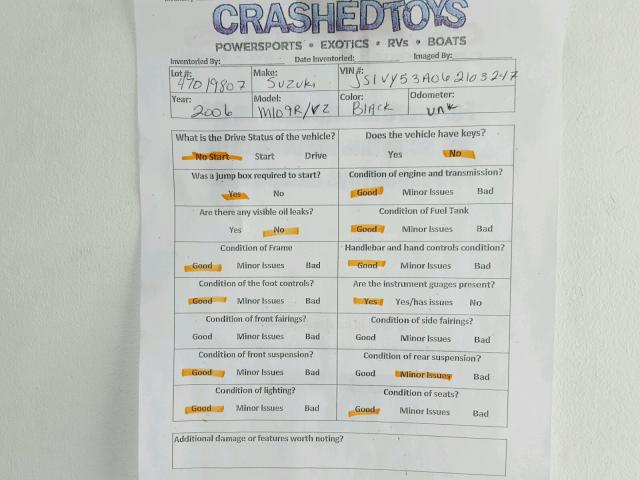 CRASHEDTOYS
POWERSPORTS • EXOTICS • RVs • BOATS
Inventoried By: Date Inventoried: Imaged By:
Lot#: 47019807 Make: Suzuki VIN #: JS1VY53A062103247
Year: 2006 Model: M109R/VZ Color: Black Odometer: unk
What is the Drive Status of the vehicle? Does the vehicle have keys?
No Start Start Drive Yes No
Was a jump box required to start? Condition of engine and transmission?
Yes No Good Minor Issues Bad
Are there any visible oil leaks? Condition of Fuel Tank
Yes No Good Minor Issues Bad
Condition of Frame Handlebar and hand controls condition?
Good Minor Issues Bad Good Minor Issues Bad
Condition of the foot controls? Are the instrument guages present?
Good Minor Issues Bad Yes Yes/has issues No
Condition of front fairings? Condition of side fairings?
Good Minor Issues Bad Good Minor Issues Bad
Condition of front suspension? Condition of rear suspension?
Good Minor Issues Bad Good Minor Issues Bad
Condition of lighting? Condition of seats?
Good Minor Issues Bad Good Minor Issues Bad
Additional damage or features worth noting?